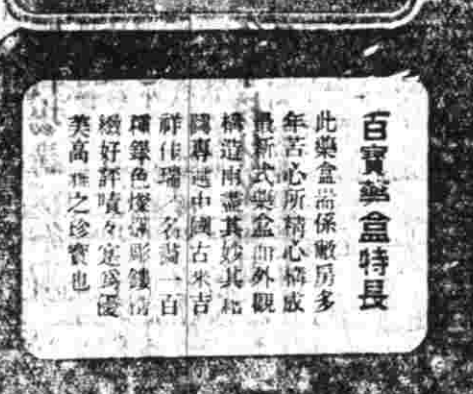 百寶藥盒特長
此藥盒耑係敝房多
年苦心所精心構成
最新式藥盒而外觀
構造兩盡其妙其
圖專選中國古來吉
祥佳瑞名一百
種色燦爛彫鏤精
緻好評嘖々寔爲優
美高雅之珍寶也